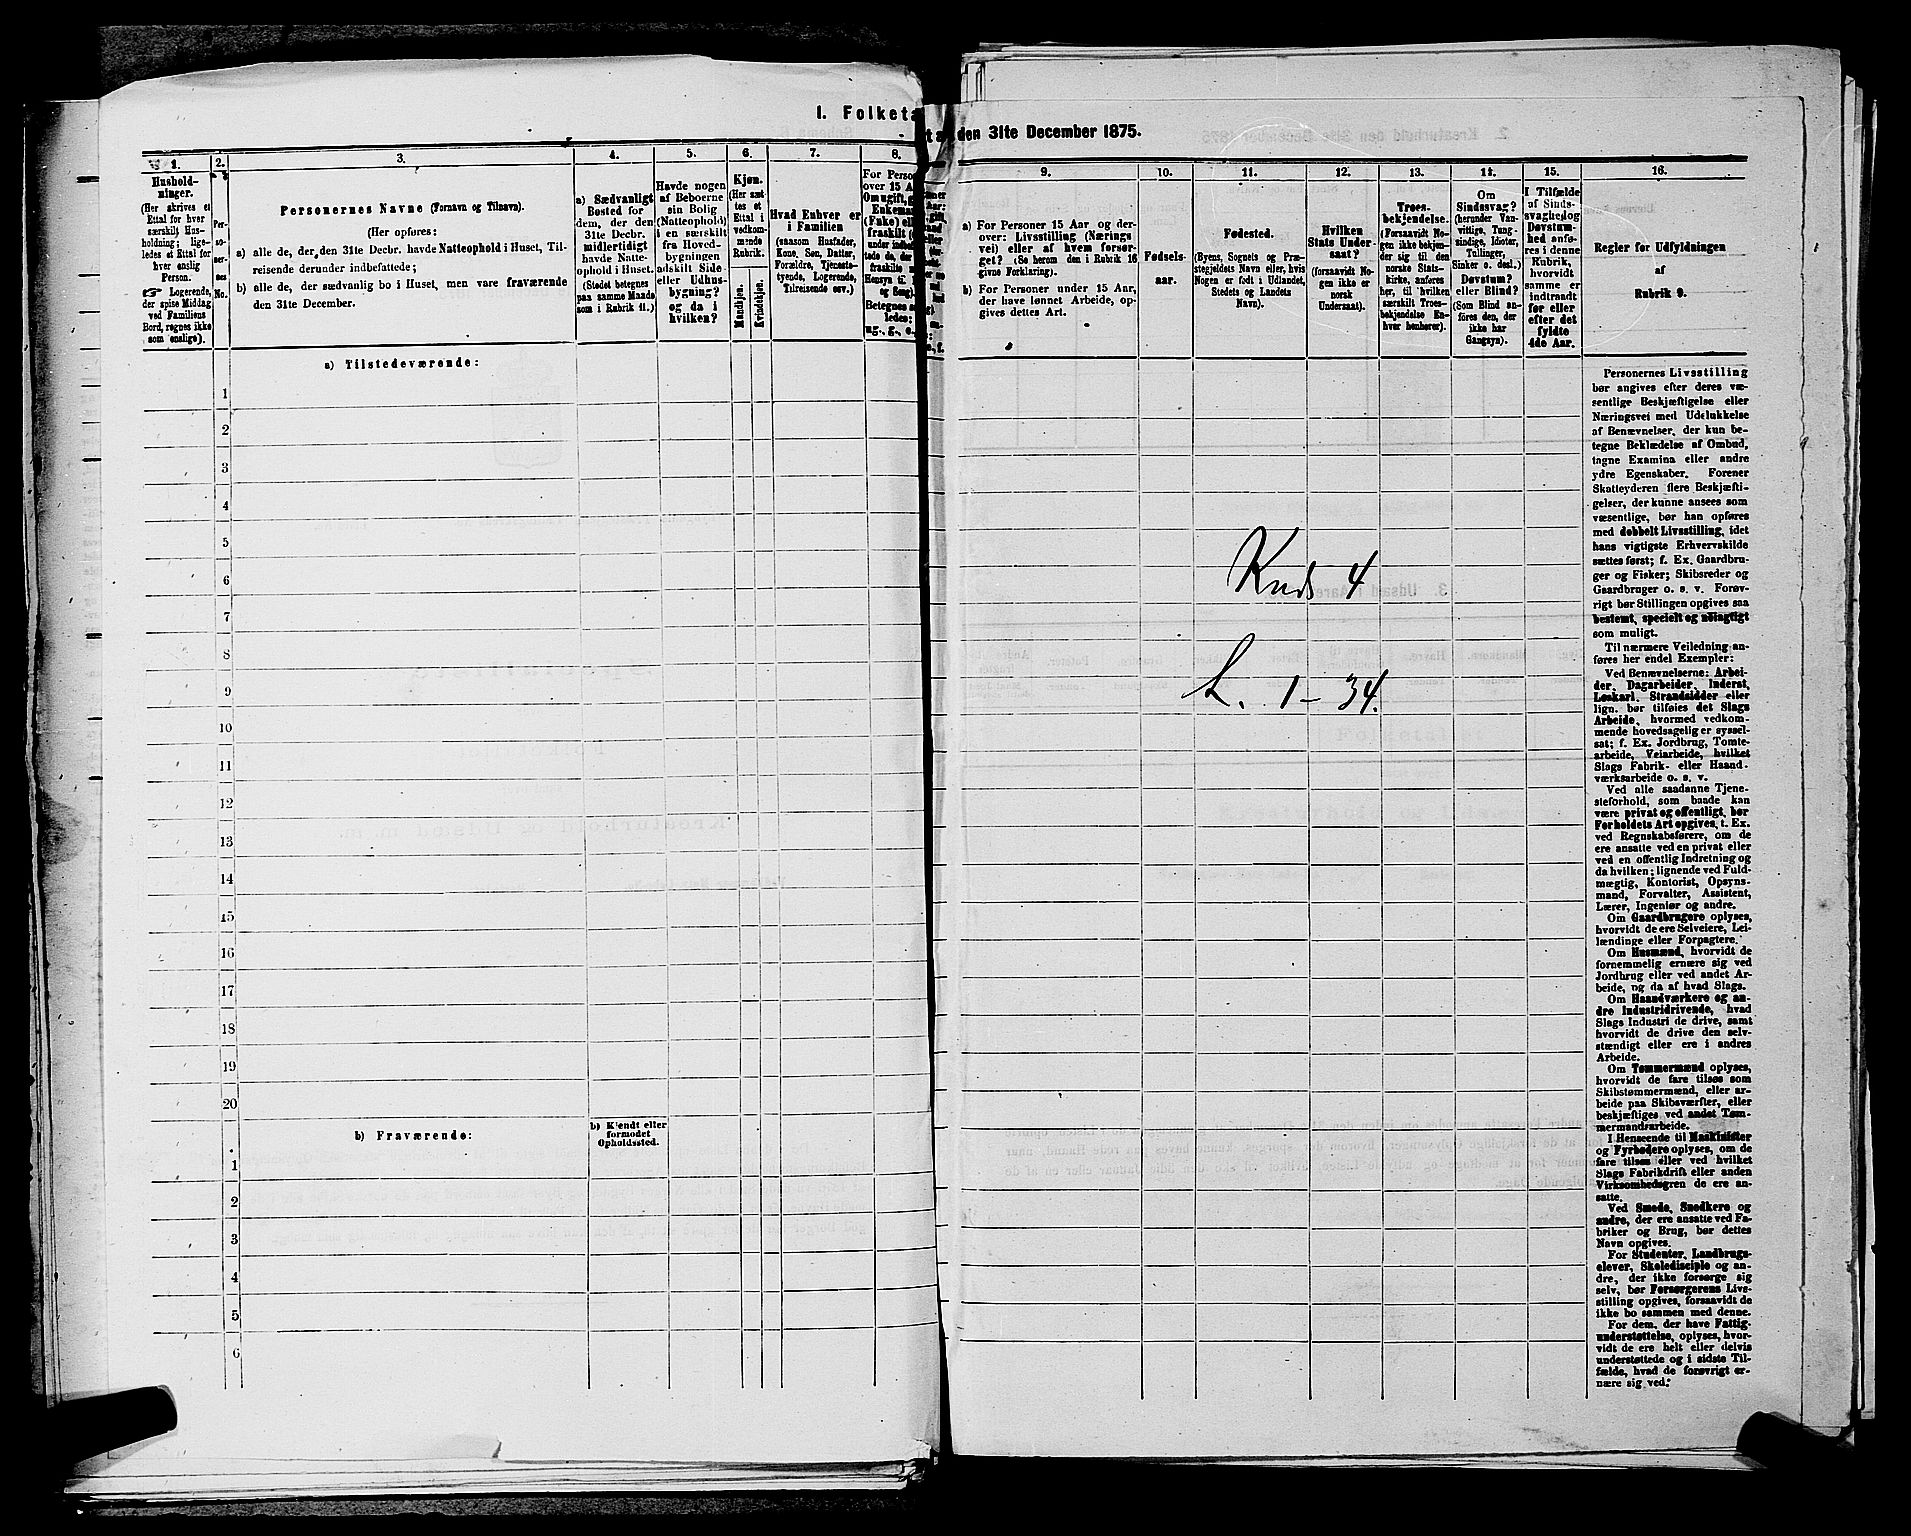 I. Folketa
1.
2.
3.
4.
5.
6.
7.
8.
Hushold-
ninger.
(Her skrives et
Ettal for hver
særskilt Hus-
holdning; lige-
ledes et Ettal for
hver enslig
Person.
Logerende,
der spise Middag
ved Familiens
Bord, regnes ikke
som enslige).
Per-
so-
ner-
nes
No.
Personernes Navne (Fornavn og Tilnavn).
(Her opføres:
a) alle de, der den 31te Decbr. havde Natteophold i Huset, Til-
reisende derunder indbefattede;
b) alle de, der sædvanlig bo i Huset, men vare fraværende
den 31te December.
a) Sædvanligt
Bosted for
dem, der den
31te Decbr.
midlertidigt
havde Natte-
ophold i Huset.
(Stedet betegnes
paa samme Maade
som i Rubrik 11.)
Havde nogen
af Beboerne
sin Bolig
(Natteophold)
i en særskilt
fra Hoved-
bygningen
adskilt Side-
eller Udhus-
bygning?
og da i
hvilken?
Kjøn.
(Her sæt-
tes et
Ettal i
vedkom-
mende
Rubrik.
Mandkjøn.
Kvindekjøn.
Hvad Enhver er
i Familien
(saasom Husfader,
Kone, Søn, Datter,
Forældre, Tjeneste-
tyende, Logerende,
Tilreisende osv.)
For Person
over 15 A
a) Tilstedeværende:
1
2
3
4
5
6
7
8
9
10
11
12
13
14
15
16
17
18
19
20
b) Fraværende:
b) Kjendt eller
formodet
Opholdssted.
1
2
3
4
5
6
den 31te December 1875.
9.
10.
11.
12.
13.
14.
15.
16.
a) For Personer 15 Aar og der-
over: Livsstilling (Nærings
vei) eller af hvem forsør-
get? (Se herom den i Rubrik 16
givne Forklaring).
b) For Personer under 15 Aar,
der have lønnet Arbeide, op-
gives dettes Art.
Fødsels-
aar.
Fødested.
(Byens, Sognets og Præ-
stegjeldets Navn eller, hvis
Nogen er født i Udlandet,
Stedets og Landets
Navn).
Hvilken
Stats Under-
saat?
(forsaavidt No-
gen ikke er
norsk
Undersaat).
Troes-
bekjendelse.
(Forsaavidt No-
gen ikke bekjen-
der sig til den
norske Stats-
kirke, anføres
her, til hvilken
særskilt Troes-
bekjendelse En-
hver henhører).
Om
Sindssvag?
(herunder Van-
vittige, Tung-
sindige, Idioter,
Tullinger,
Sinker o. desl.)
Døvstum?
eller Blind?
(Som Blind an-
føres den, der
ikke har
Gangsyn).
I Tilfælde
af Sinds-
svaghed og
Døvstum-
hed anfø-
res i denne
Rubrik,
hvorvidt
samme er
indtraadt
før eller
efter det
fyldte
4de Aar.
Regler for Udfyldningen
af
Rubrik 9.
Knds 4
L. 1 - 34.
Personernes Livsstilling
bør angives efter deres væ-
sentlige Beskjæftigelse eller
Næringsvei med Udelukkelse
af Benævnelser, der kun be-
tegne Beklædelse af Ombud,
tagne Examina eller andre
ydre Egenskaber. Forener
Skatteyderen flere Beskjæfti-
gelser, der kunne ansees som
væsentlige, bør han opføres
med dobbelt Livsstilling, idet
hans vigtigste Erhvervskilde
sættes først; f. Ex. Gaardbru-
ger og Fisker; Skibsreder og
Gaardbruger o. s. v. Forøv-
rigt bør Stillingen opgives saa
bestemt, specielt og nøiagtigt
som muligt.
Til nærmere Veiledning an-
føres her endel Exempler:
Ved Benævnelserne: Arbei-
der, Dagarbeider, Inderst,
Løskarl, Strandsidder eller
lign. bør tilføies det Slags
Arbeide, hvormed vedkom-
mende hovedsagelig er syssel-
sat; f. Ex. Jordbrug, Tomte-
arbeide, Veiarbeide, hvilket
Slags Fabrik- eller Haand-
værksarbeide o. s. v.
Ved alle saadanne Tjene-
steforhold, som baade kan
være privat og offentligt, bør
Forholdets Art opgives, t. Ex.
ved Regnskabsførere, om de
ere ansatte ved en privat eller
ved en offentlig Indretning og
da hvilken; lignende ved Fuld-
mægtig, Kontorist, Opsyns-
mand, Forvalter, Assistent,
Lærer, Ingeniør og andre.
Om Gaardbrugere oplyses,
hvorvidt de ere Selveiere, Lei-
lændinge eller Forpagtere.
Om Husmænd, hvorvidt de
fornemmelig ernære sig ved
Jordbrug eller ved andet Ar-
beide, og da af hvad Slags.
Om Haandværkere og an-
dre Industridrivende, hvad
Slags Industri de drive, samt
hvorvidt de drive den selv-
stændigt eller ere i andres
Arbeide.
Om Tømmermænd oplyses,
hvorvidt de fare tilsøs som
Skibstømmermænd, eller ar-
beide paa Skibsværfter, eller
beskjæftiges ved andet Tøm-
mermandsarbeide.
I Henseende til Maskinister
og Fyrbødere oplyses, om de
fare tilsøs eller ved hvilket
Slags Fabrikdrift eller anden
Virksomhedsgren de ere an-
satte.
Ved Smede, Snedkere og
andre, der ere ansatte ved Fa-
briker og Brug, bør dettes
Navn opgives.
For Studenter, Landbrugs-
elever, Skoledisciple og an-
dre, der ikke forsørge sig
selv, bør Forsørgerens Livs-
stilling opgives, forsaavidt de
ikke bo sammen med denne.
For dem, der have Fattig-
understøttelse, oplyses, hvor-
vidt de ere helt eller delvis
understøttede og i sidste Til-
fælde, hvad de forøvrigt er-
nære sig ved.